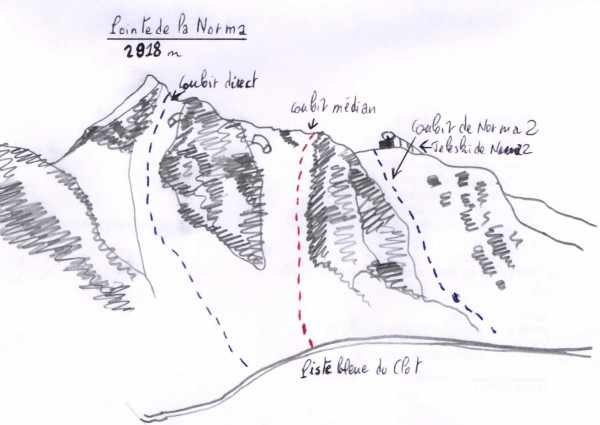 Pointe de la Norma
2918 m
Couloir direct
Couloir médian
Couloir de Norma 2
Téléski de Norma 2
Piste bleue du Clot